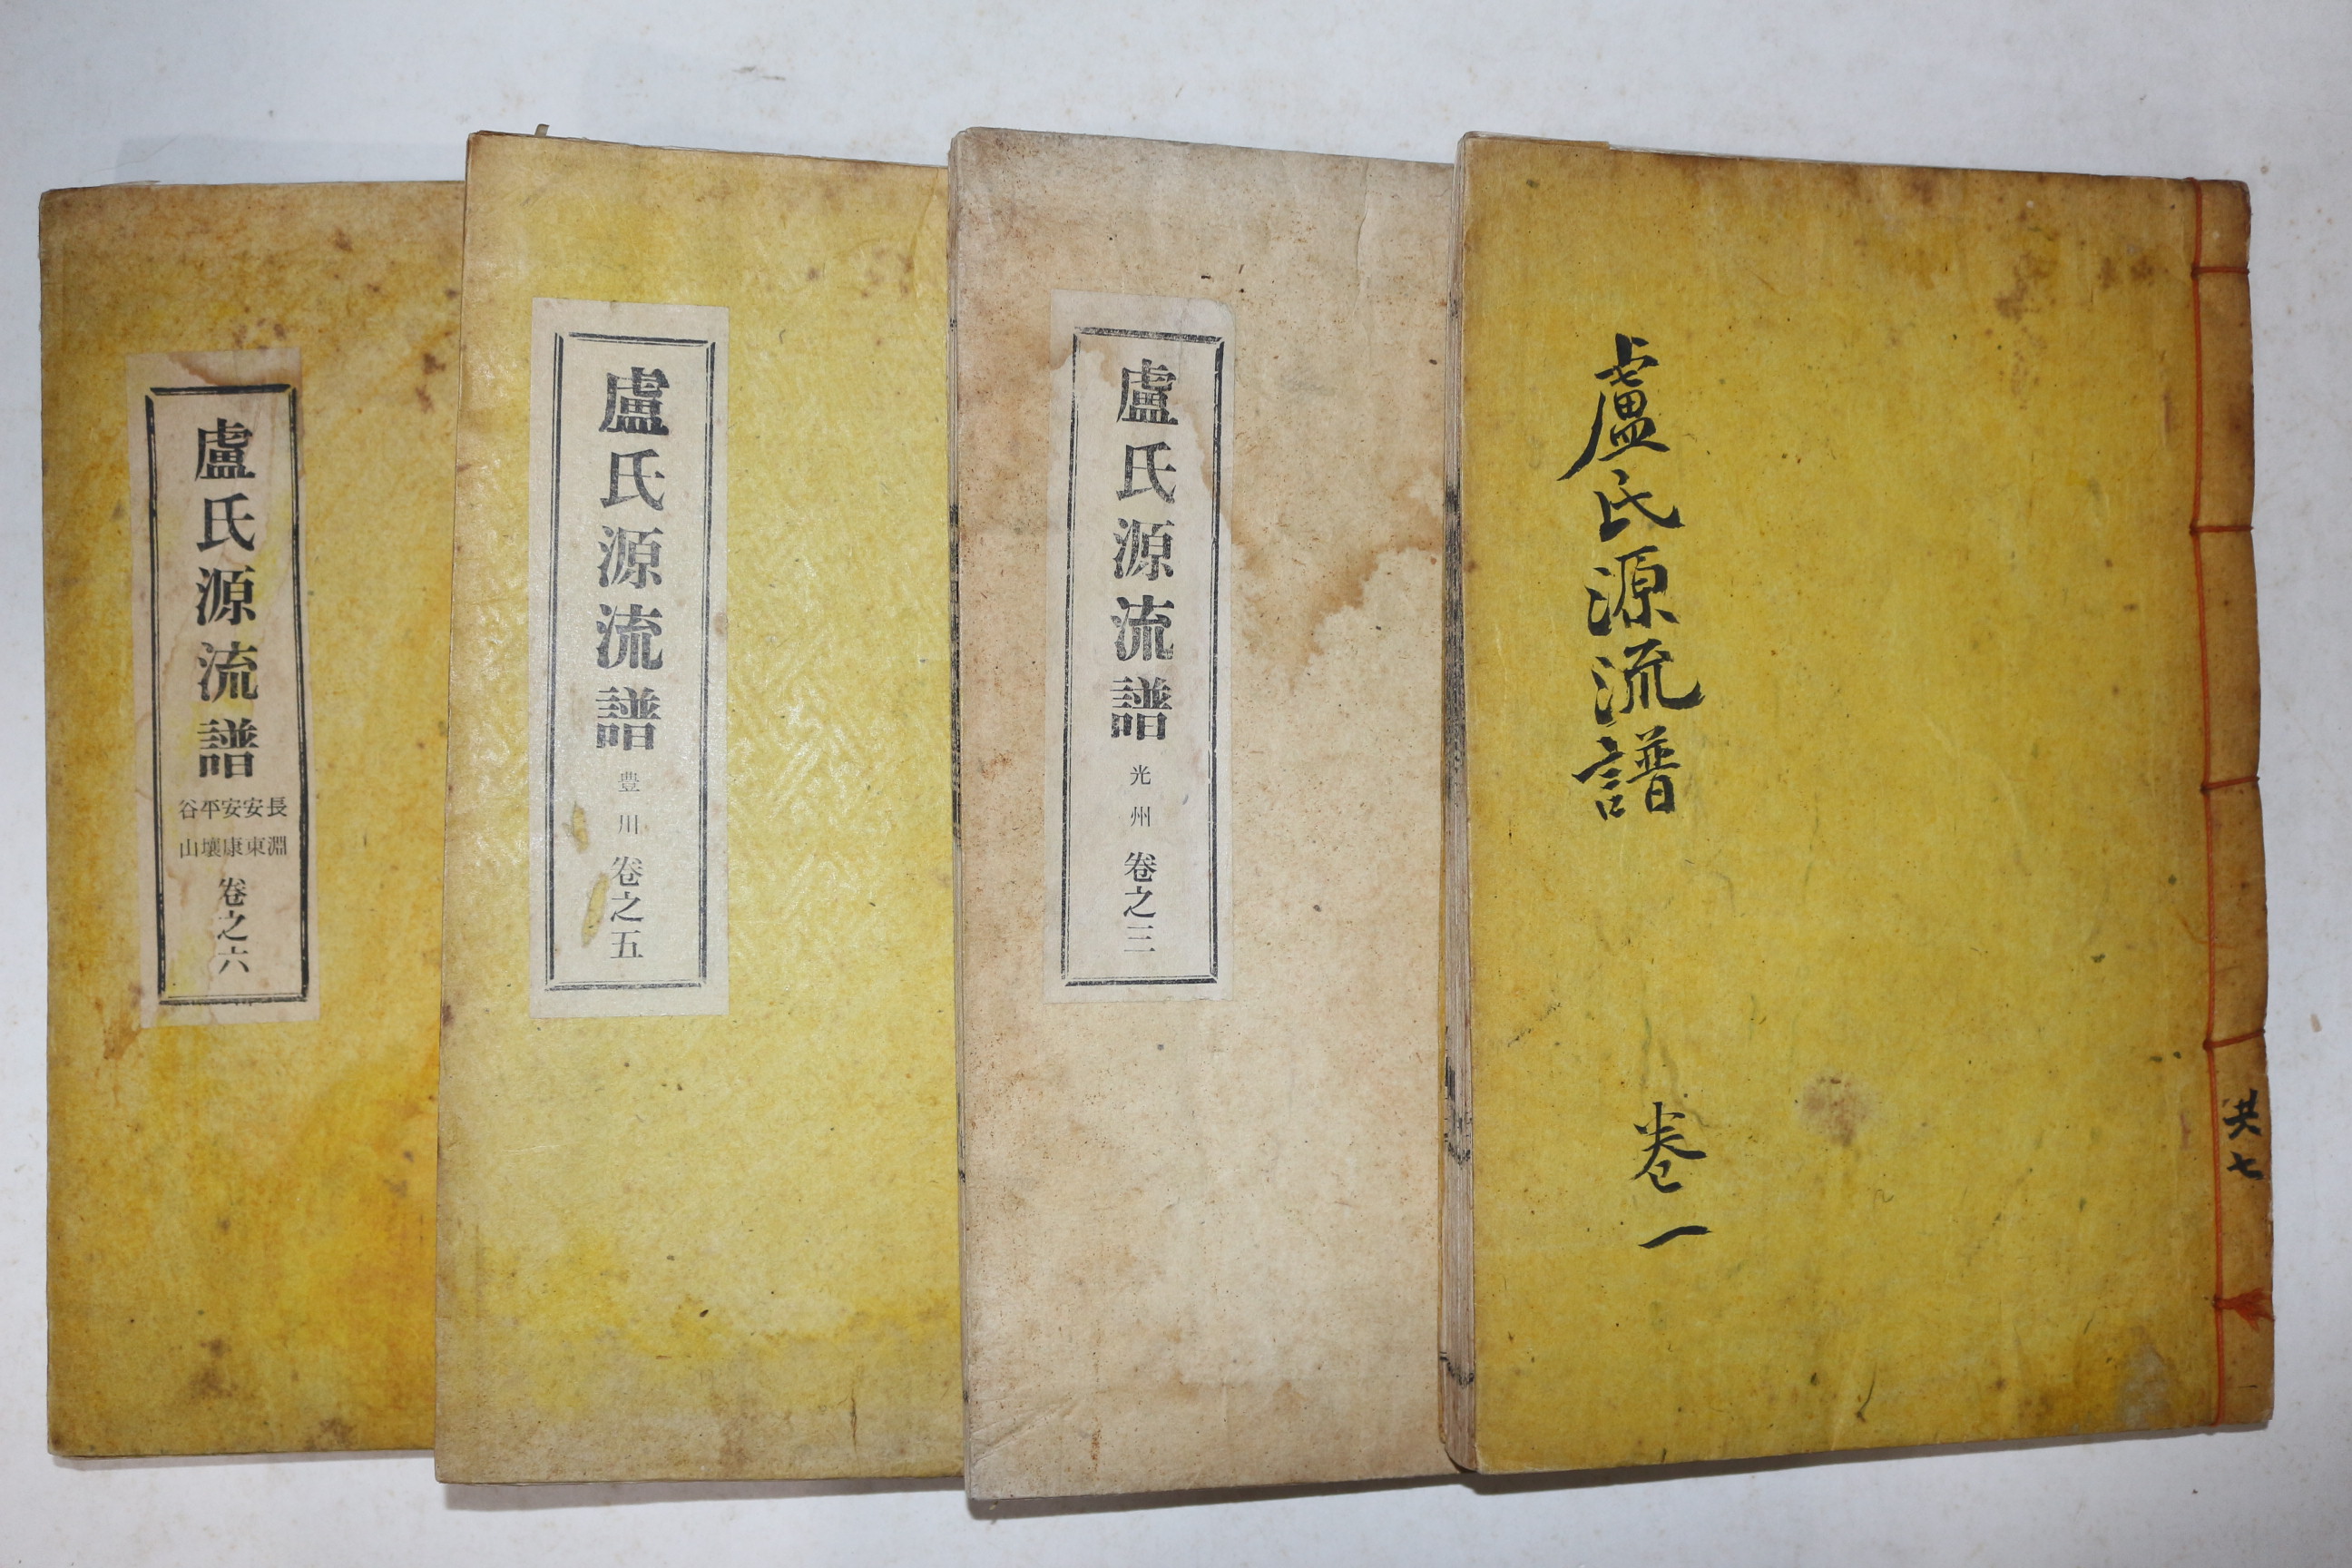 盧氏源流譜
卷一
共七
盧氏源流譜 光州 卷之三
盧氏源流譜 豊川 卷之五
盧氏源流譜
長淵
安東
安康
平壤
谷山
卷之六